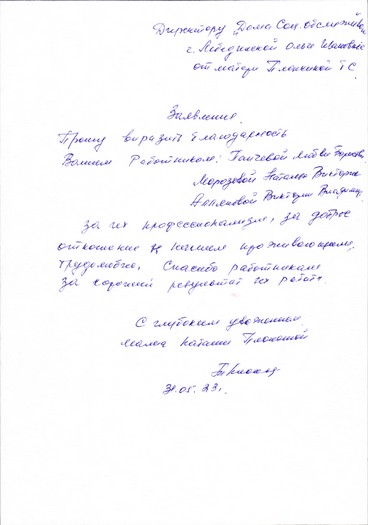 Директору "Дома Соц. обслуживан
г. Лебединской Ольге Ивановне
от матери Плохиной Т С.
Заявление.
Прошу выразить благодарность
Вашим Работникам: Ганчевой Любови Борисовн
Морозовой Наталье Викторовн
Виктории Владимир
за их профессионализм, за доброе
отношение к нашим проживающим,
трудолюбие, Спасибо работникам
за хороший результат их работы
С глубоким уважением
мама Наташи Плохиной
31.05.23г.